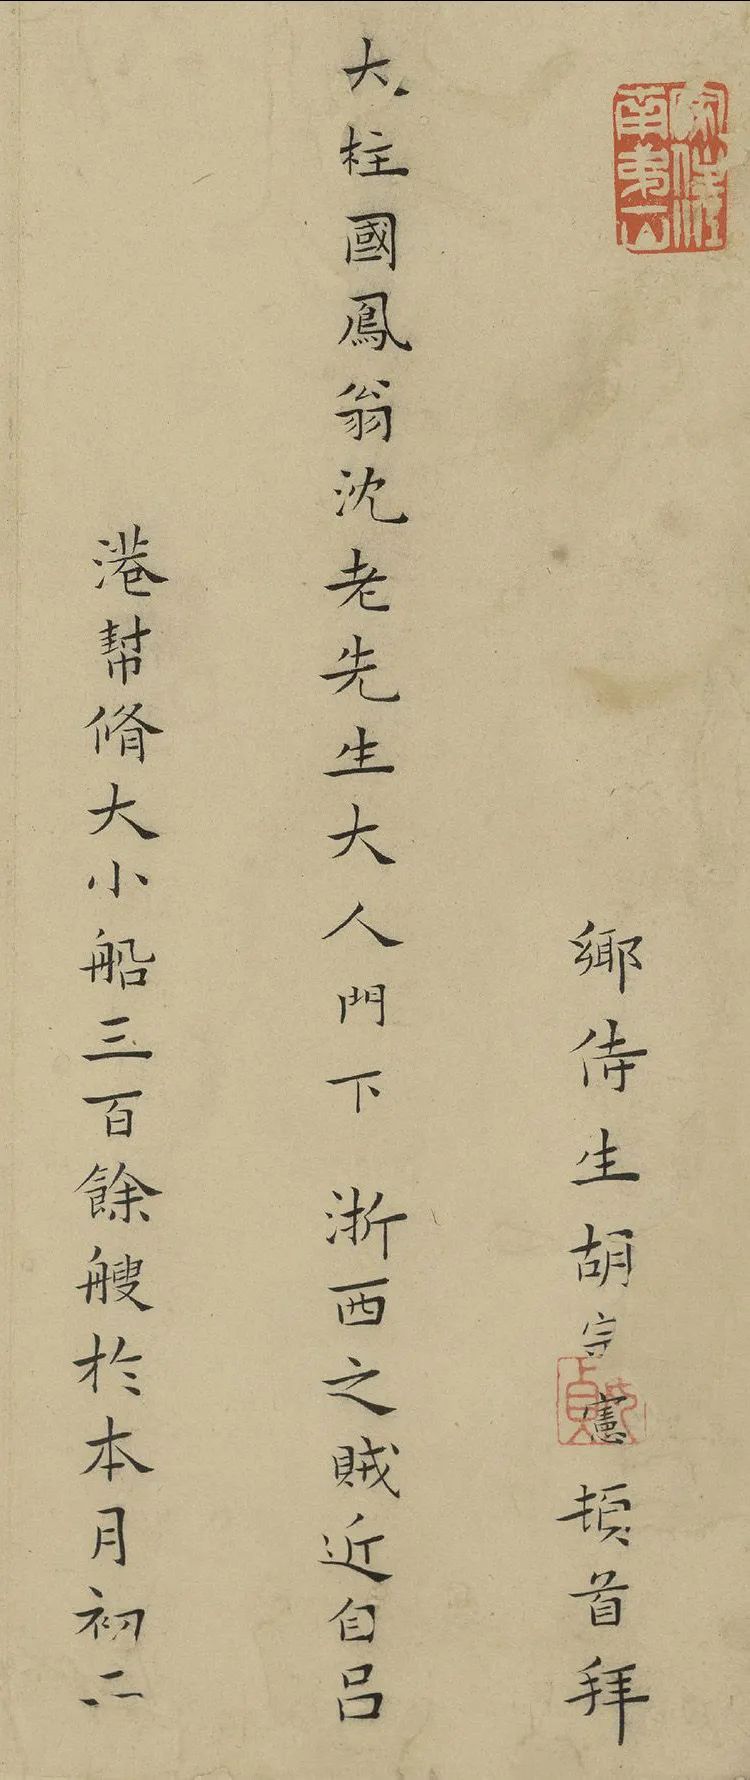 鄉侍生胡宗憲頓首拜
大柱國鳳翁沈老先生大人門下 浙西之賊近自呂
港幇脩大小船三百餘艘於本月初二